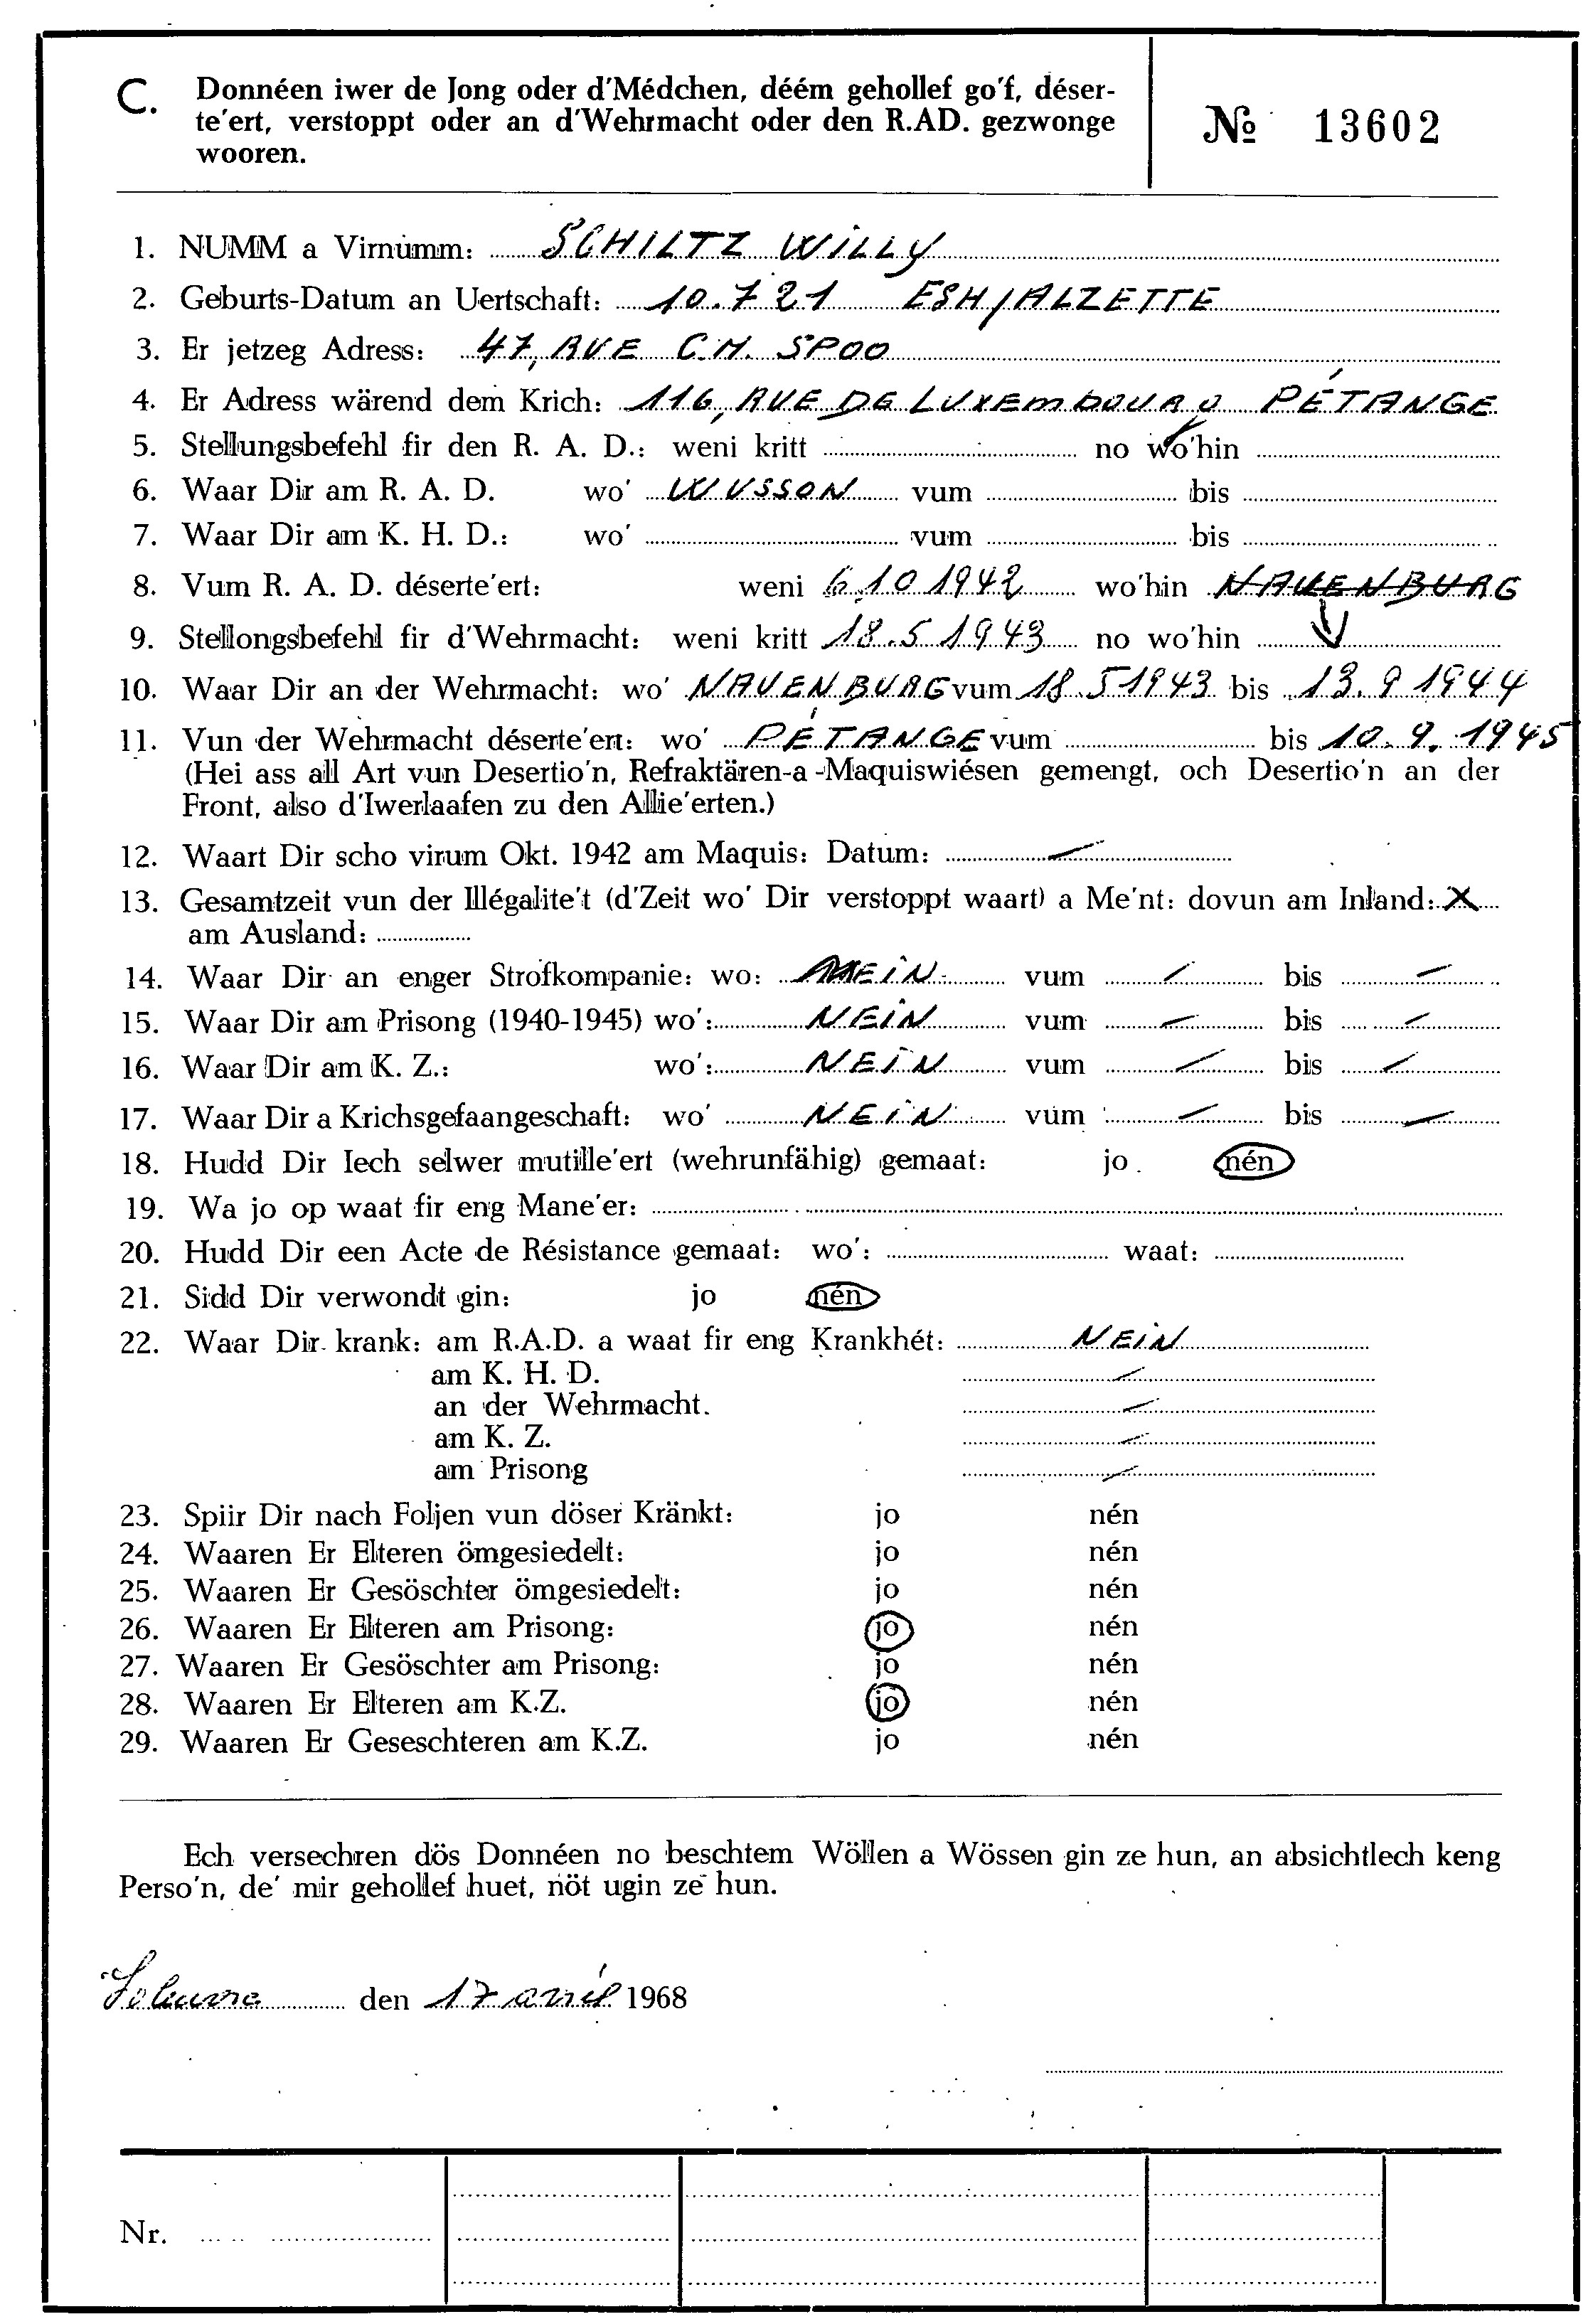 C. Donnéen iwer de Jong oder d'Médchen, déém gehollef go'f, déser-
te'ert, verstoppt oder an d'Wehrmacht oder den R.AD. gezwonge
wooren.
№ 13602
1. NUMM a Virnumm: SCHILTZ WILLY
2. Geburts-Datum an Uertschaft: 10.7 21 ESH/ALZETTE
3. Er jetzeg Adress: 47, RUE C.M. SPOO
4. Er Adress wärend dem Krich: 116, RUE DE LUXEMBOURG PÉTANGE
5. Stellungsbefehl fir den R. A. D.: weni kritt no wo'hin
6. Waar Dir am R. A. D. wo' WUSSON vum bis
7. Waar Dir am K. H. D.: wo' vum bis
8. Vum R. A. D. déserte'ert: weni 6.10 1942 wo'hin NAUENBURG
9. Stellongsbefehl fir d'Wehrmacht: weni kritt 18.5 1943 no wo'hin
10. Waar Dir an der Wehrmacht: wo' NAUENBURG vum 18.5 1943 bis 13.9 1944
11. Vun der Wehrmacht déserte'ert: wo' PÉTANGE vum bis 10.9.1945
(Hei ass all Art vun Desertio'n, Refraktären-a-Maquiswiésen gemengt, och Desertio'n an der
Front, also d'Iwerlaafen zu den Allie'erten.)
12. Waart Dir scho virum Okt. 1942 am Maquis: Datum: —
13. Gesamtzeit vun der Illégalite't (d'Zeit wo' Dir verstoppt waart) a Me'nt: dovun am Inland: X
am Ausland:
14. Waar Dir an enger Strofkompanie: wo: NEIN vum — bis —
15. Waar Dir am Prisong (1940-1945) wo': NEIN vum — bis —
16. Waar Dir am K. Z.: wo': NEIN vum — bis —
17. Waar Dir a Krichsgefaangeschaft: wo' NEIN vum — bis —
18. Hudd Dir Iech selwer mutille'ert (wehrunfähig) gemaat: jo nén
19. Wa jo op waat fir eng Mane'er:
20. Hudd Dir een Acte de Résistance gemaat: wo': waat:
21. Sidd Dir verwondt gin: jo nén
22. Waar Dir krank: am R.A.D. a waat fir eng Krankhét: NEIN
am K. H. D. —
an der Wehrmacht. —
am K. Z. —
am Prisong —
23. Spiir Dir nach Foljen vun döser Kränkt: jo nén
24. Waaren Er Elteren ömgesiedelt: jo nén
25. Waaren Er Gesöschter ömgesiedelt: jo nén
26. Waaren Er Elteren am Prisong: jo nén
27. Waaren Er Gesöschter am Prisong: jo nén
28. Waaren Er Elteren am K.Z. jo nén
29. Waaren Er Geseschteren am K.Z. jo nén
Ech versechren dös Donnéen no beschtem Wöllen a Wössen gin ze hun, an absichtlech keng
Perso'n, de' mir gehollef huet, nöt ugin ze hun.
den 17 avril 1968
Nr.